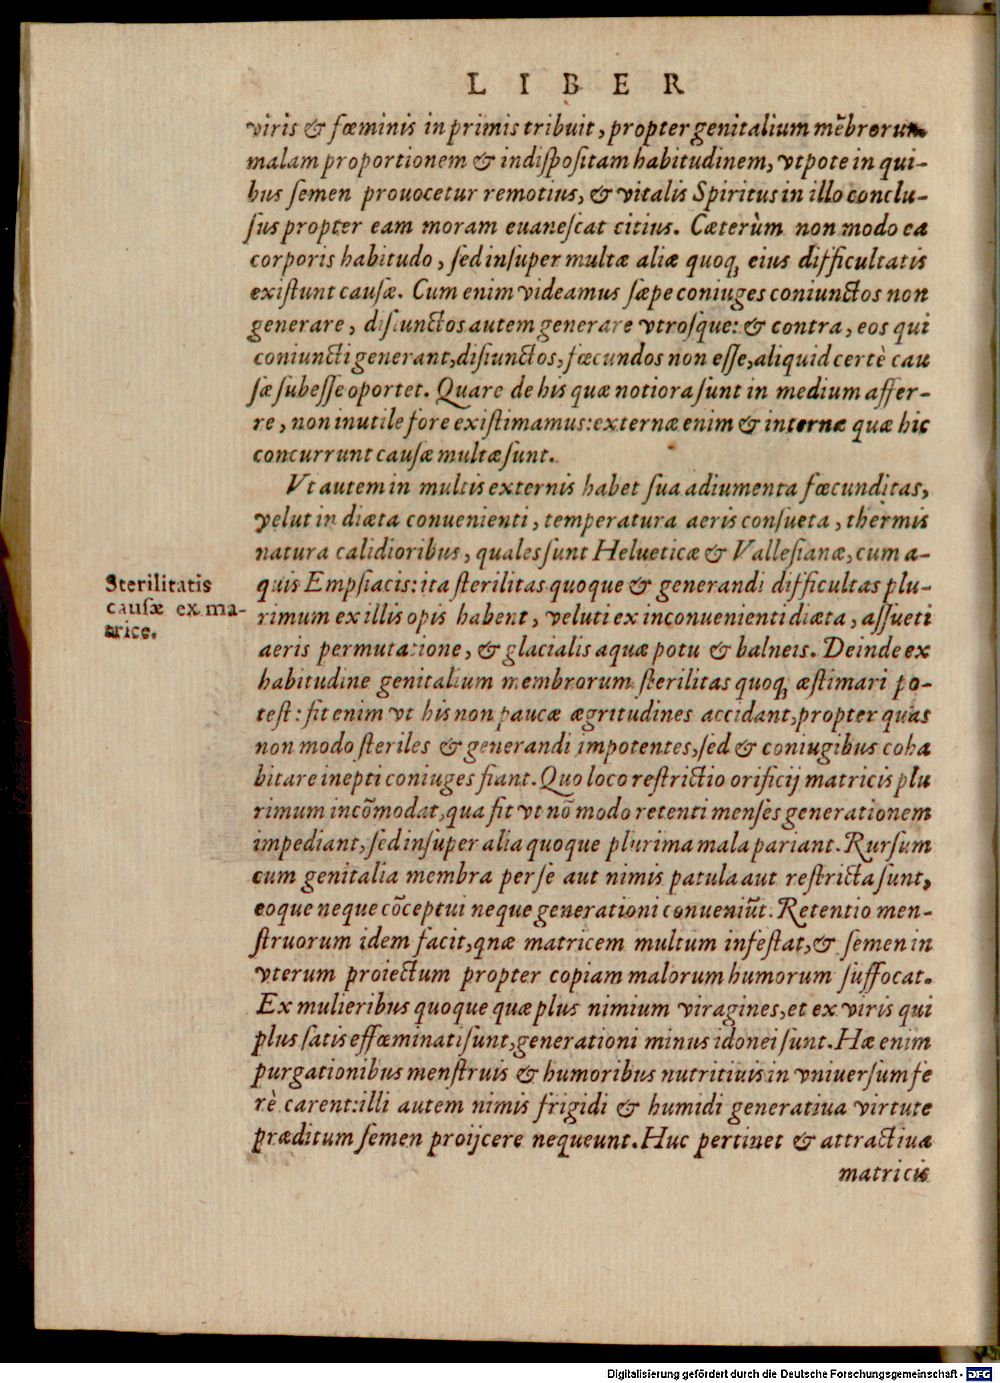 LIBER
viris & fœminis in primis tribuit, propter genitalium mẽbrorum
malam proportionem & indispositam habitudinem, vtpote in qui-
bus semen prouocetur remotius, & vitalis Spiritus in illo conclu-
sus propter eam moram euanescat citius. Cæterùm non modo ea
corporis habitudo, sed insuper multæ aliæ quoq; eius difficultatis
existunt causæ. Cum enim videamus sæpe coniuges coniunctos non
generare, disiunctos autem generare vtrosque: & contra, eos qui
coniuncti generant, disiunctos, fœcundos non esse, aliquid certè cau
sæ subesse oportet. Quare de his quæ notiora sunt in medium affer-
re, non inutile fore existimamus: externæ enim & internæ quæ hic
concurrunt causæ multæ sunt.
Vt autem in multis externis habet sua adiumenta fœcunditas,
velut in diæta conuenienti, temperatura aeris consueta, thermis
natura calidioribus, quales sunt Helueticæ & Vallesianæ, cum a-
quis Empsiacis: ita sterilitas quoque & generandi difficultas plu-
rimum ex illis opis habent, veluti ex inconuenienti diæta, assueti
aeris permutatione, & glacialis aquæ potu & balneis. Deinde ex
habitudine genitalium membrorum sterilitas quoq; æstimari po-
test: fit enim vt his non paucæ ægritudines accidant, propter quas
non modo steriles & generandi impotentes, sed & coniugibus coha
bitare inepti coniuges fiant. Quo loco restrictio orificij matricis plu
rimum incõmodat, qua fit vt nõ modo retenti menses generationem
impediant, sed insuper alia quoque plurima mala pariant. Rursum
cum genitalia membra per se aut nimis patula aut restricta sunt,
eoque neque cõceptui neque generationi conueniũt. Retentio men-
struorum idem facit, qnæ matricem multum infestat, & semen in
vterum proiectum propter copiam malorum humorum suffocat.
Ex mulieribus quoque quæ plus nimium viragines, et ex viris qui
plus satis effœminati sunt, generationi minus idonei sunt. Hæ enim
purgationibus menstruis & humoribus nutritiuis in vniuersum fe
rè carent: illi autem nimis frigidi & humidi generatiua virtute
præditum semen proijcere nequeunt. Huc pertinet & attractiua
matricis
Sterilitatis
causæ ex ma-
trice.
Digitalisierung gefördert durch die Deutsche Forschungsgemeinschaft - DFG